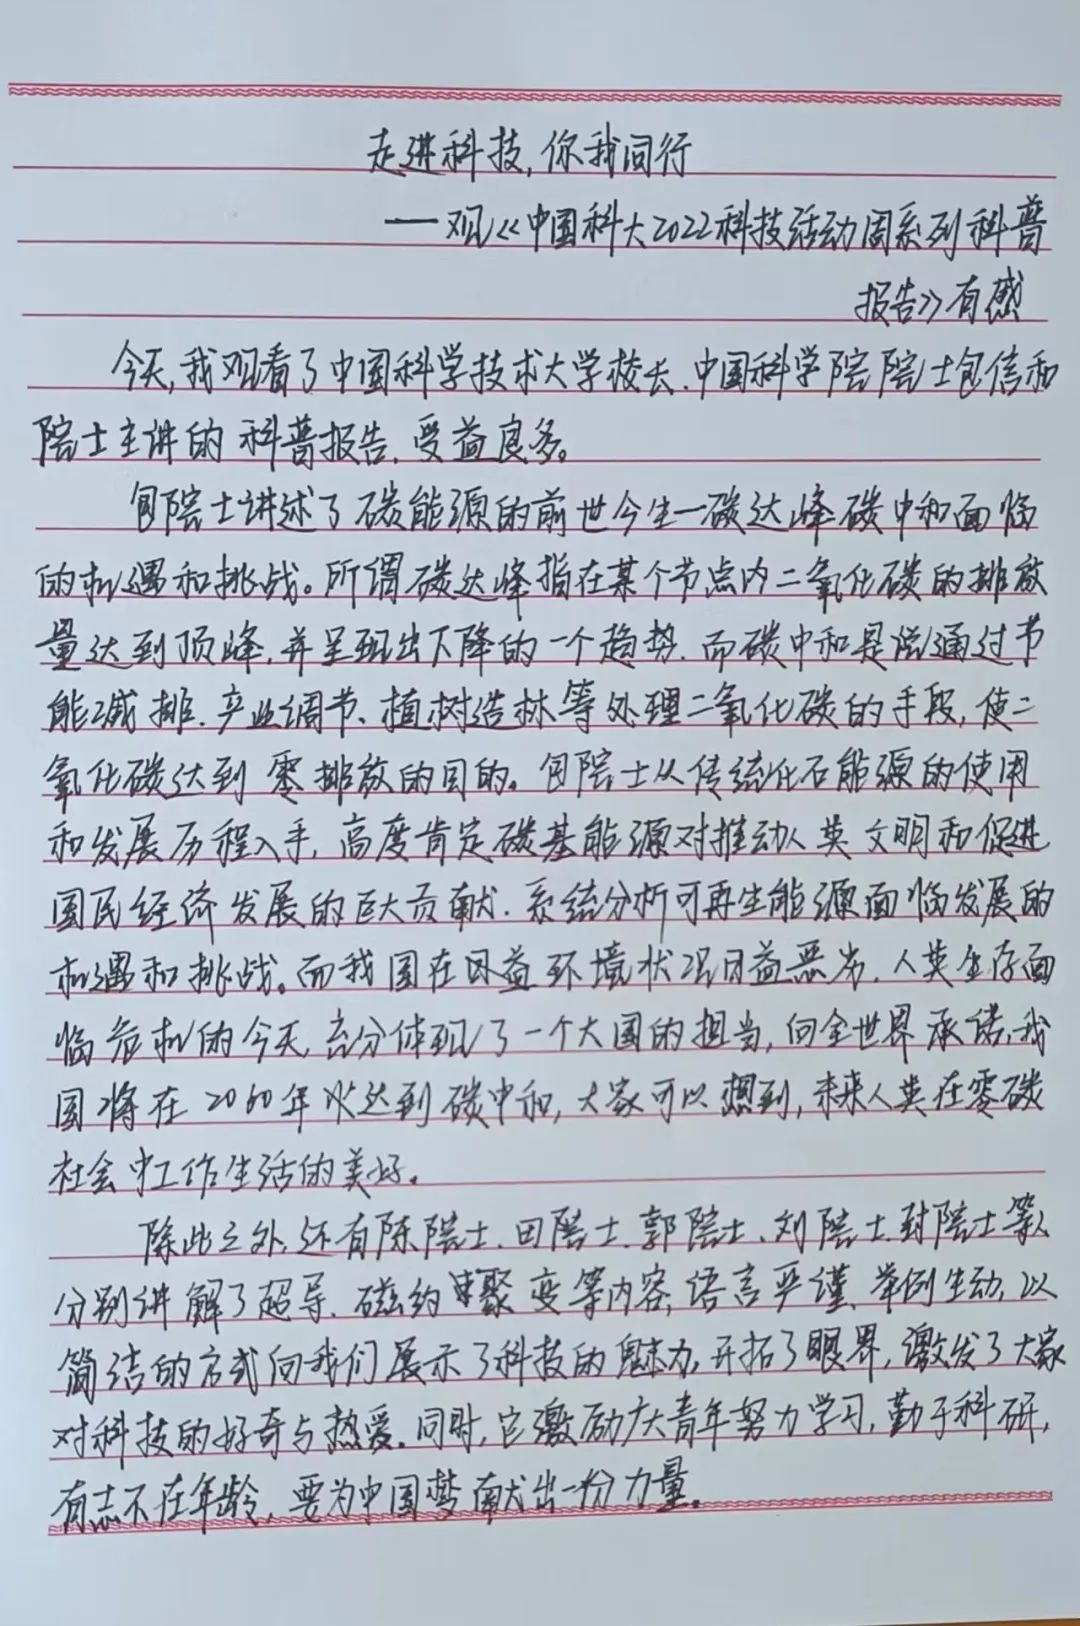 走进科技,你我同行
——观《中国科大2022科技活动周系列科普
报告》有感
今天,我观看了中国科学技术大学校长、中国科学院院士包信和
院士主讲的科普报告,受益良多。
包院士讲述了碳能源的前世今生—碳达峰碳中和面临
的机遇和挑战。所谓碳达峰指在某个节点内二氧化碳的排放
量达到顶峰,并呈现出下降的一个趋势,而碳中和是说通过节
能减排、产业调节、植树造林等处理二氧化碳的手段,使二
氧化碳达到零排放的目的。包院士从传统化石能源的使用
和发展历程入手,高度肯定碳基能源对推动人类文明和促进
国民经济发展的巨大贡献,系统分析可再生能源面临发展的
机遇和挑战。而我国在日益环境状况日益恶劣,人类生存面
临危机的今天,充分体现了一个大国的担当,向全世界承诺,我
国将在2060年以达到碳中和,大家可以想到,未来人类在零碳
社会中工作生活的美好。
除此之外,还有陈院士、田院士、郭院士、刘院士、封院士等人
分别讲解了超导、磁约束聚变等内容,语言严谨、举例生动,以
简洁的方式向我们展示了科技的魅力,开拓了眼界,激发了大家
对科技的好奇与热爱。同时,它激励广大青年努力学习,勤于科研,
有志不在年龄,要为中国梦献出一份力量。